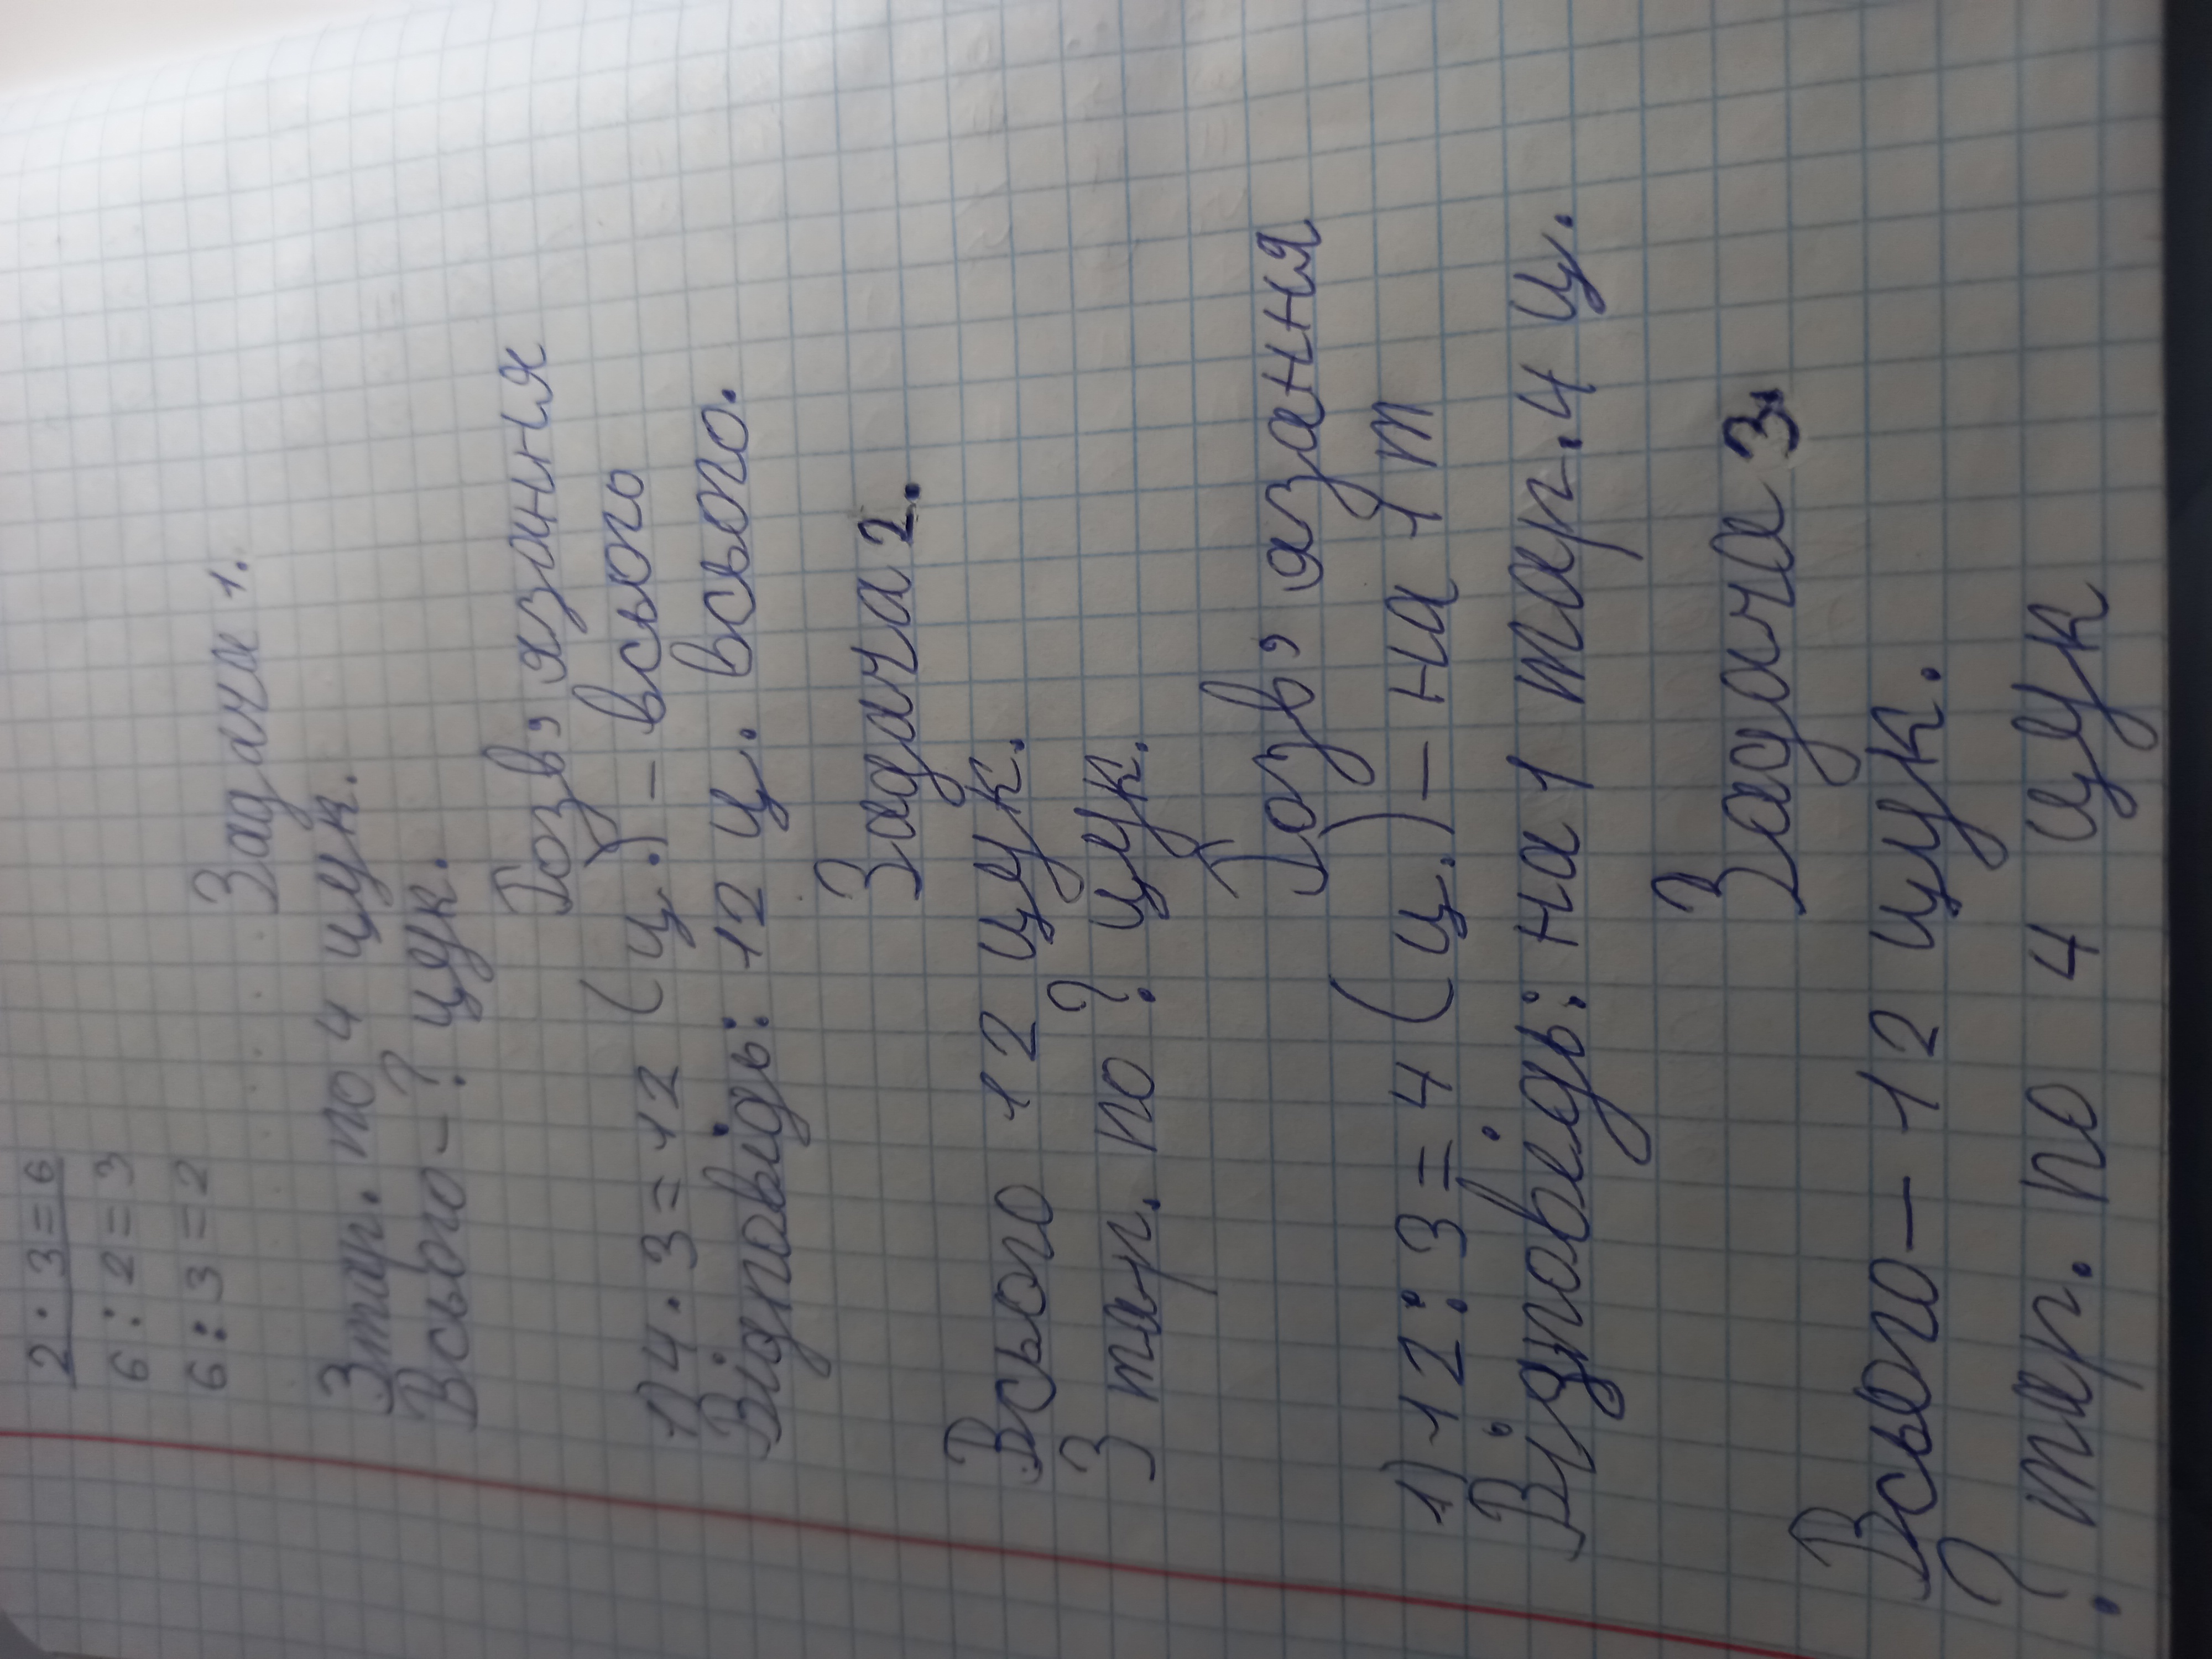 2 · 3 = 6
6 : 2 = 3
6 : 3 = 2
Задача 1.
3 тар. по 4 цук.
Всього - ? цук.
Розв, язання
1) 4 · 3 = 12 (ц.) - всього
Відповідь: 12 ц. всього.
Задача 2.
Всього 12 цук.
3 тар. по ? цук.
Розв, язання
1) 12 : 3 = 4 (ц.) - на 1 т
Відповідь: на 1 тар. 4 ц.
Задача 3.
Всього - 12 цук.
? тар. по 4 цук